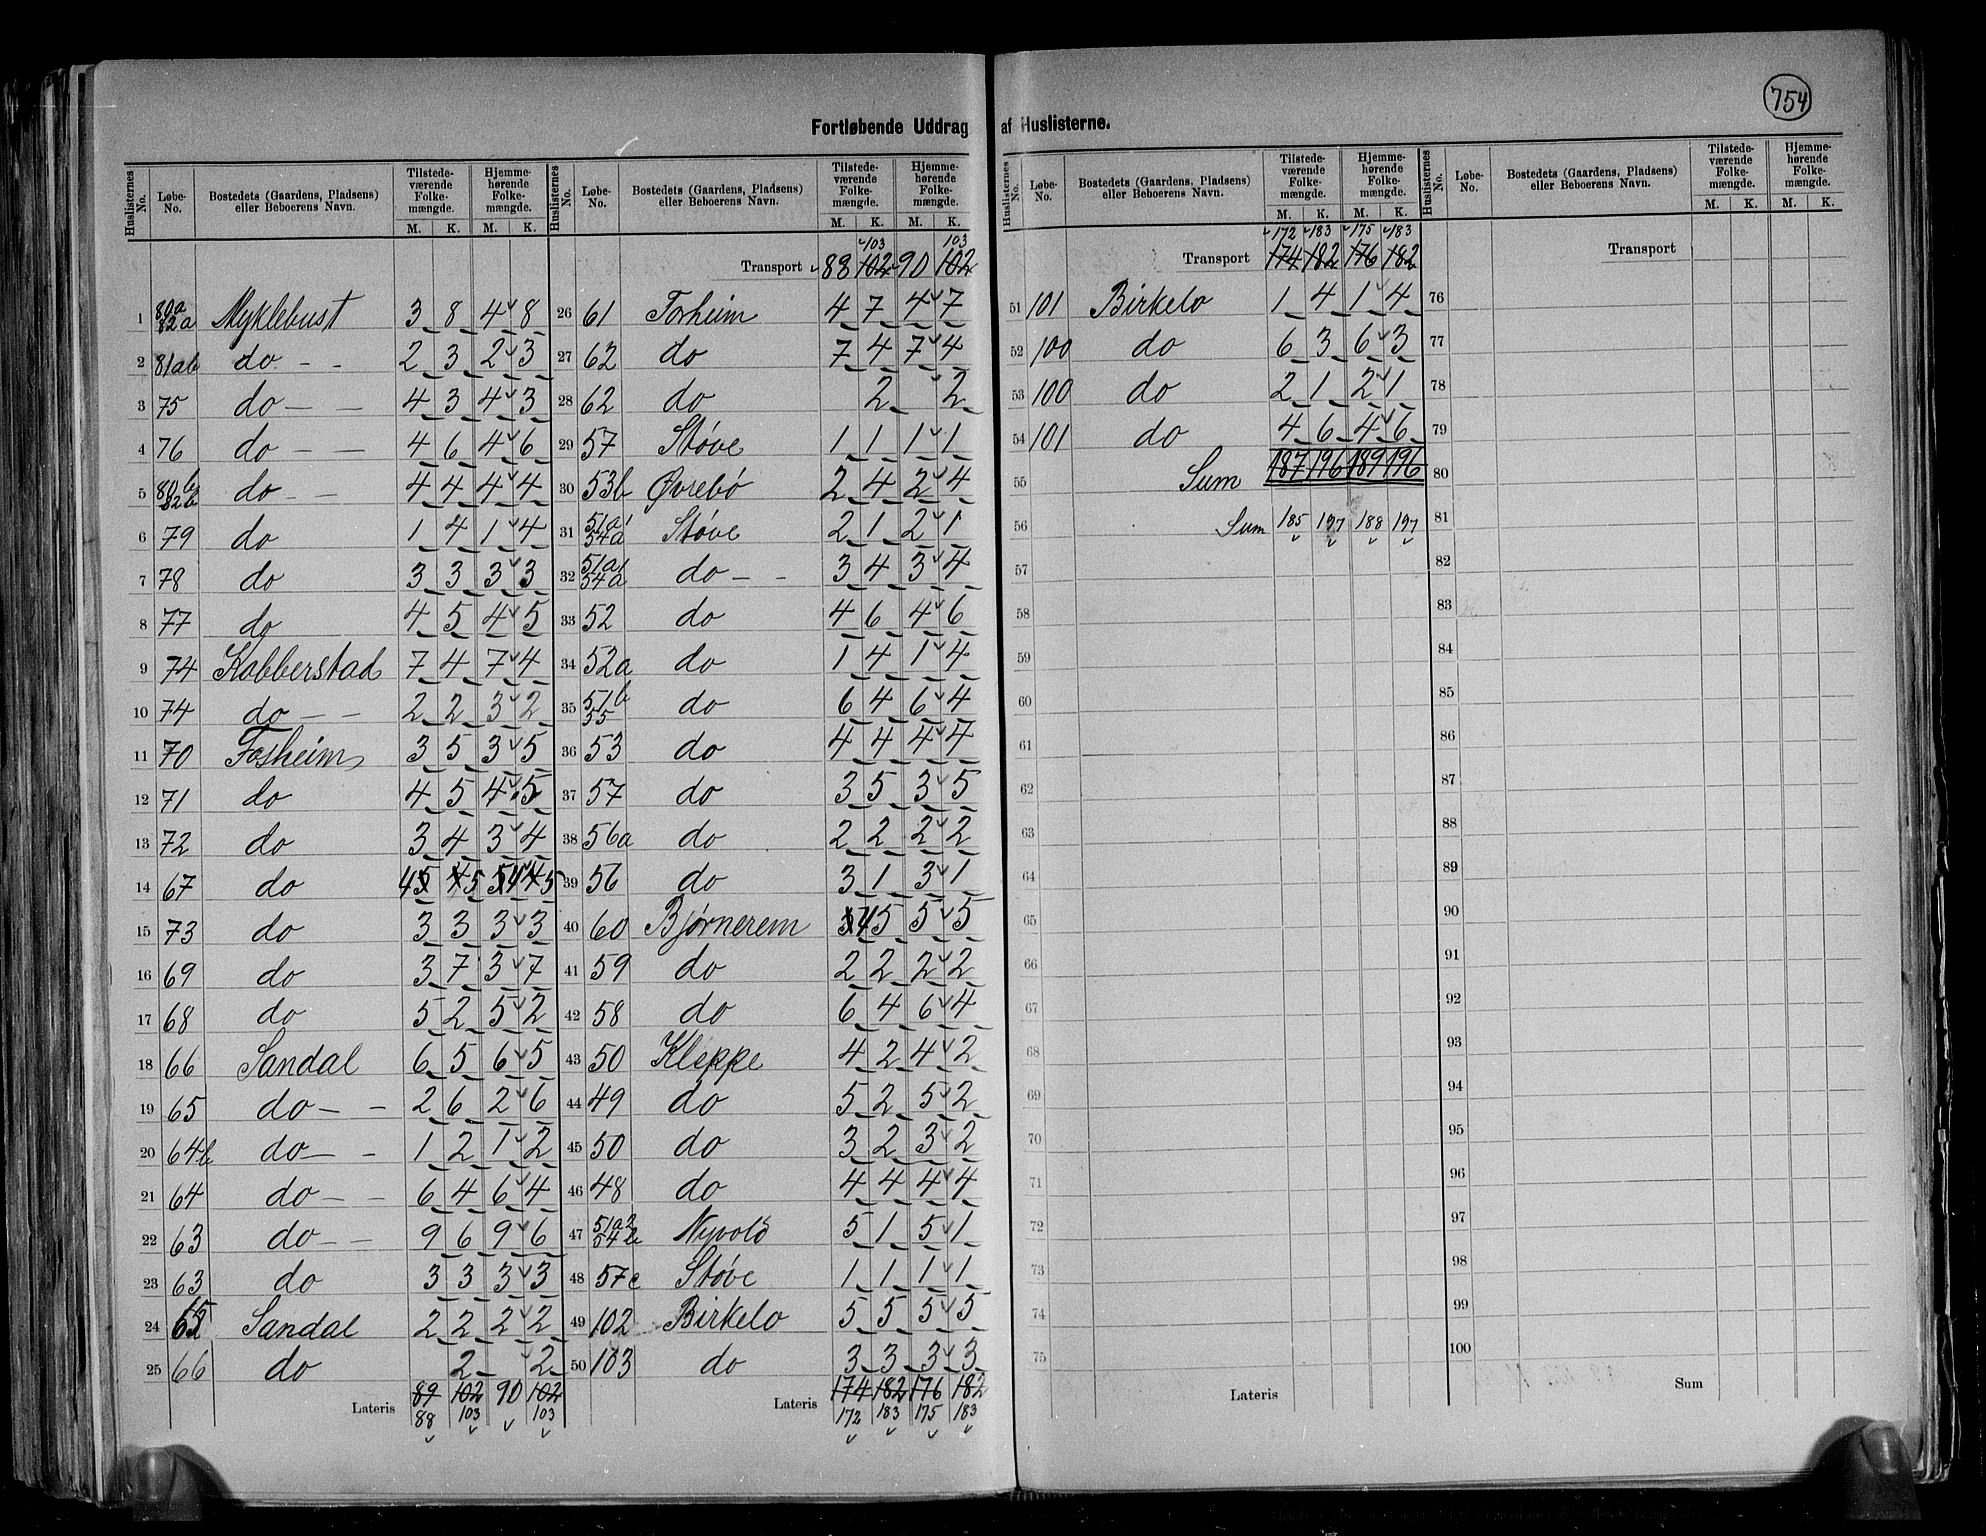 754
Fortløbende Uddrag af Huslisterne.
Huslisternes No. | Løbe-No. | Bostedets (Gaardens, Pladsens) eller Beboerens Navn. | Tilstede-værende Folke-mængde. M. K. | Hjemme-hørende Folke-mængde. M. K.
1 | 80a 82a | Myklebust | 3 | 8 | 4 | 8
2 | 81ab | do - - | 2 | 3 | 2 | 3
3 | 75 | do - - | 4 | 3 | 4 | 3
4 | 76 | do - - | 4 | 6 | 4 | 6
5 | 80b 82b | do - - | 4 | 4 | 4 | 4
6 | 79 | do | 1 | 4 | 1 | 4
7 | 78 | do | 3 | 3 | 3 | 3
8 | 77 | do | 4 | 5 | 4 | 5
9 | 74 | Kobberstad | 7 | 4 | 7 | 4
10 | 74 | do - - | 2 | 2 | 3 | 2
11 | 70 | Fosheim | 3 | 5 | 3 | 5
12 | 71 | do | 4 | 5 | 4 | 5
13 | 72 | do | 3 | 4 | 3 | 4
14 | 67 | do | 4 5 | 4 5 | 5 4 | 4 5
15 | 73 | do | 3 | 3 | 3 | 3
16 | 69 | do | 3 | 7 | 3 | 7
17 | 68 | do | 5 | 2 | 5 | 2
18 | 66 | Sandal | 6 | 5 | 6 | 5
19 | 65 | do - - | 2 | 6 | 2 | 6
20 | 64b | do - - | 1 | 2 | 1 | 2
21 | 64 | do - - | 6 | 4 | 6 | 4
22 | 63 | do - - | 9 | 6 | 9 | 6
23 | 63 | do | 3 | 3 | 3 | 3
24 | 65 | Sandal | 2 | 2 | 2 | 2
25 | 66 | do | | 2 | | 2
Lateris | 89 | 102 | 90 | 102
88 | 103 | | 103
Huslisternes No. | Løbe-No. | Bostedets (Gaardens, Pladsens) eller Beboerens Navn. | Tilstede-værende Folke-mængde. M. K. | Hjemme-hørende Folke-mængde. M. K.
103 | 103
Transport | 88 | 102 | 90 | 102
26 | 61 | Forheim | 4 | 7 | 4 | 7
27 | 62 | do | 7 | 4 | 7 | 4
28 | 62 | do | | 2 | | 2
29 | 57 | Støve | 1 | 1 | 1 | 1
30 | 53b | Øvrebø | 2 | 4 | 2 | 4
31 | 51a1 54a | Støve | 2 | 1 | 2 | 1
32 | 51a1 54a | do - - | 3 | 4 | 3 | 4
33 | 52 | do | 4 | 6 | 4 | 6
34 | 52a | do | 1 | 4 | 1 | 4
35 | 51b 55 | do | 6 | 4 | 6 | 4
36 | 53 | do | 4 | 4 | 4 | 4
37 | 57 | do | 3 | 5 | 3 | 5
38 | 56a | do | 2 | 2 | 2 | 2
39 | 56 | do | 3 | 1 | 3 | 1
40 | 60 | Bjørnerem | 4 | 5 | 5 | 5
41 | 59 | do | 2 | 2 | 2 | 2
42 | 58 | do | 6 | 4 | 6 | 4
43 | 50 | Kleppe | 4 | 2 | 4 | 2
44 | 49 | do | 5 | 2 | 5 | 2
45 | 50 | do | 3 | 2 | 3 | 2
46 | 48 | do | 4 | 4 | 4 | 4
47 | 51a2 54b | Nyvold | 5 | 1 | 5 | 1
48 | 57c | Støve | 1 | 1 | 1 | 1
49 | 102 | Birkelo | 5 | 5 | 5 | 5
50 | 103 | do | 3 | 3 | 3 | 3
Lateris | 174 | 182 | 176 | 182
172 | 183 | 175 | 183
Huslisternes No. | Løbe-No. | Bostedets (Gaardens, Pladsens) eller Beboerens Navn. | Tilstede-værende Folke-mængde. M. K. | Hjemme-hørende Folke-mængde. M. K.
172 | 183 | 175 | 183
Transport | 174 | 182 | 176 | 182
51 | 101 | Birkelo | 1 | 4 | 1 | 4
52 | 100 | do | 6 | 3 | 6 | 3
53 | 100 | do | 2 | 1 | 2 | 1
54 | 101 | do | 4 | 6 | 4 | 6
55 | Sum | 187 | 196 | 189 | 196
56 | Sum | 185 | 197 | 188 | 197
57
58
59
60
61
62
63
64
65
66
67
68
69
70
71
72
73
74
75
Lateris
Huslisternes No. | Løbe-No. | Bostedets (Gaardens, Pladsens) eller Beboerens Navn. | Tilstede-værende Folke-mængde. M. K. | Hjemme-hørende Folke-mængde. M. K.
Transport
76
77
78
79
80
81
82
83
84
85
86
87
88
89
90
91
92
93
94
95
96
97
98
99
100
Sum